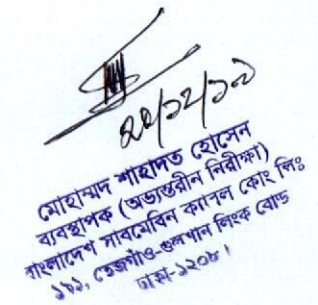 ২০/১২/১৯
মোহাম্মদ শাহাদত হোসেন
ব্যবস্থাপক (অভ্যন্তরীন নিরীক্ষা)
বাংলাদেশ সাবমেরিন ক্যাবল কোং লিঃ
তেজগাঁও-গুলশান লিংক রোড
ঢাকা-১২০৮।